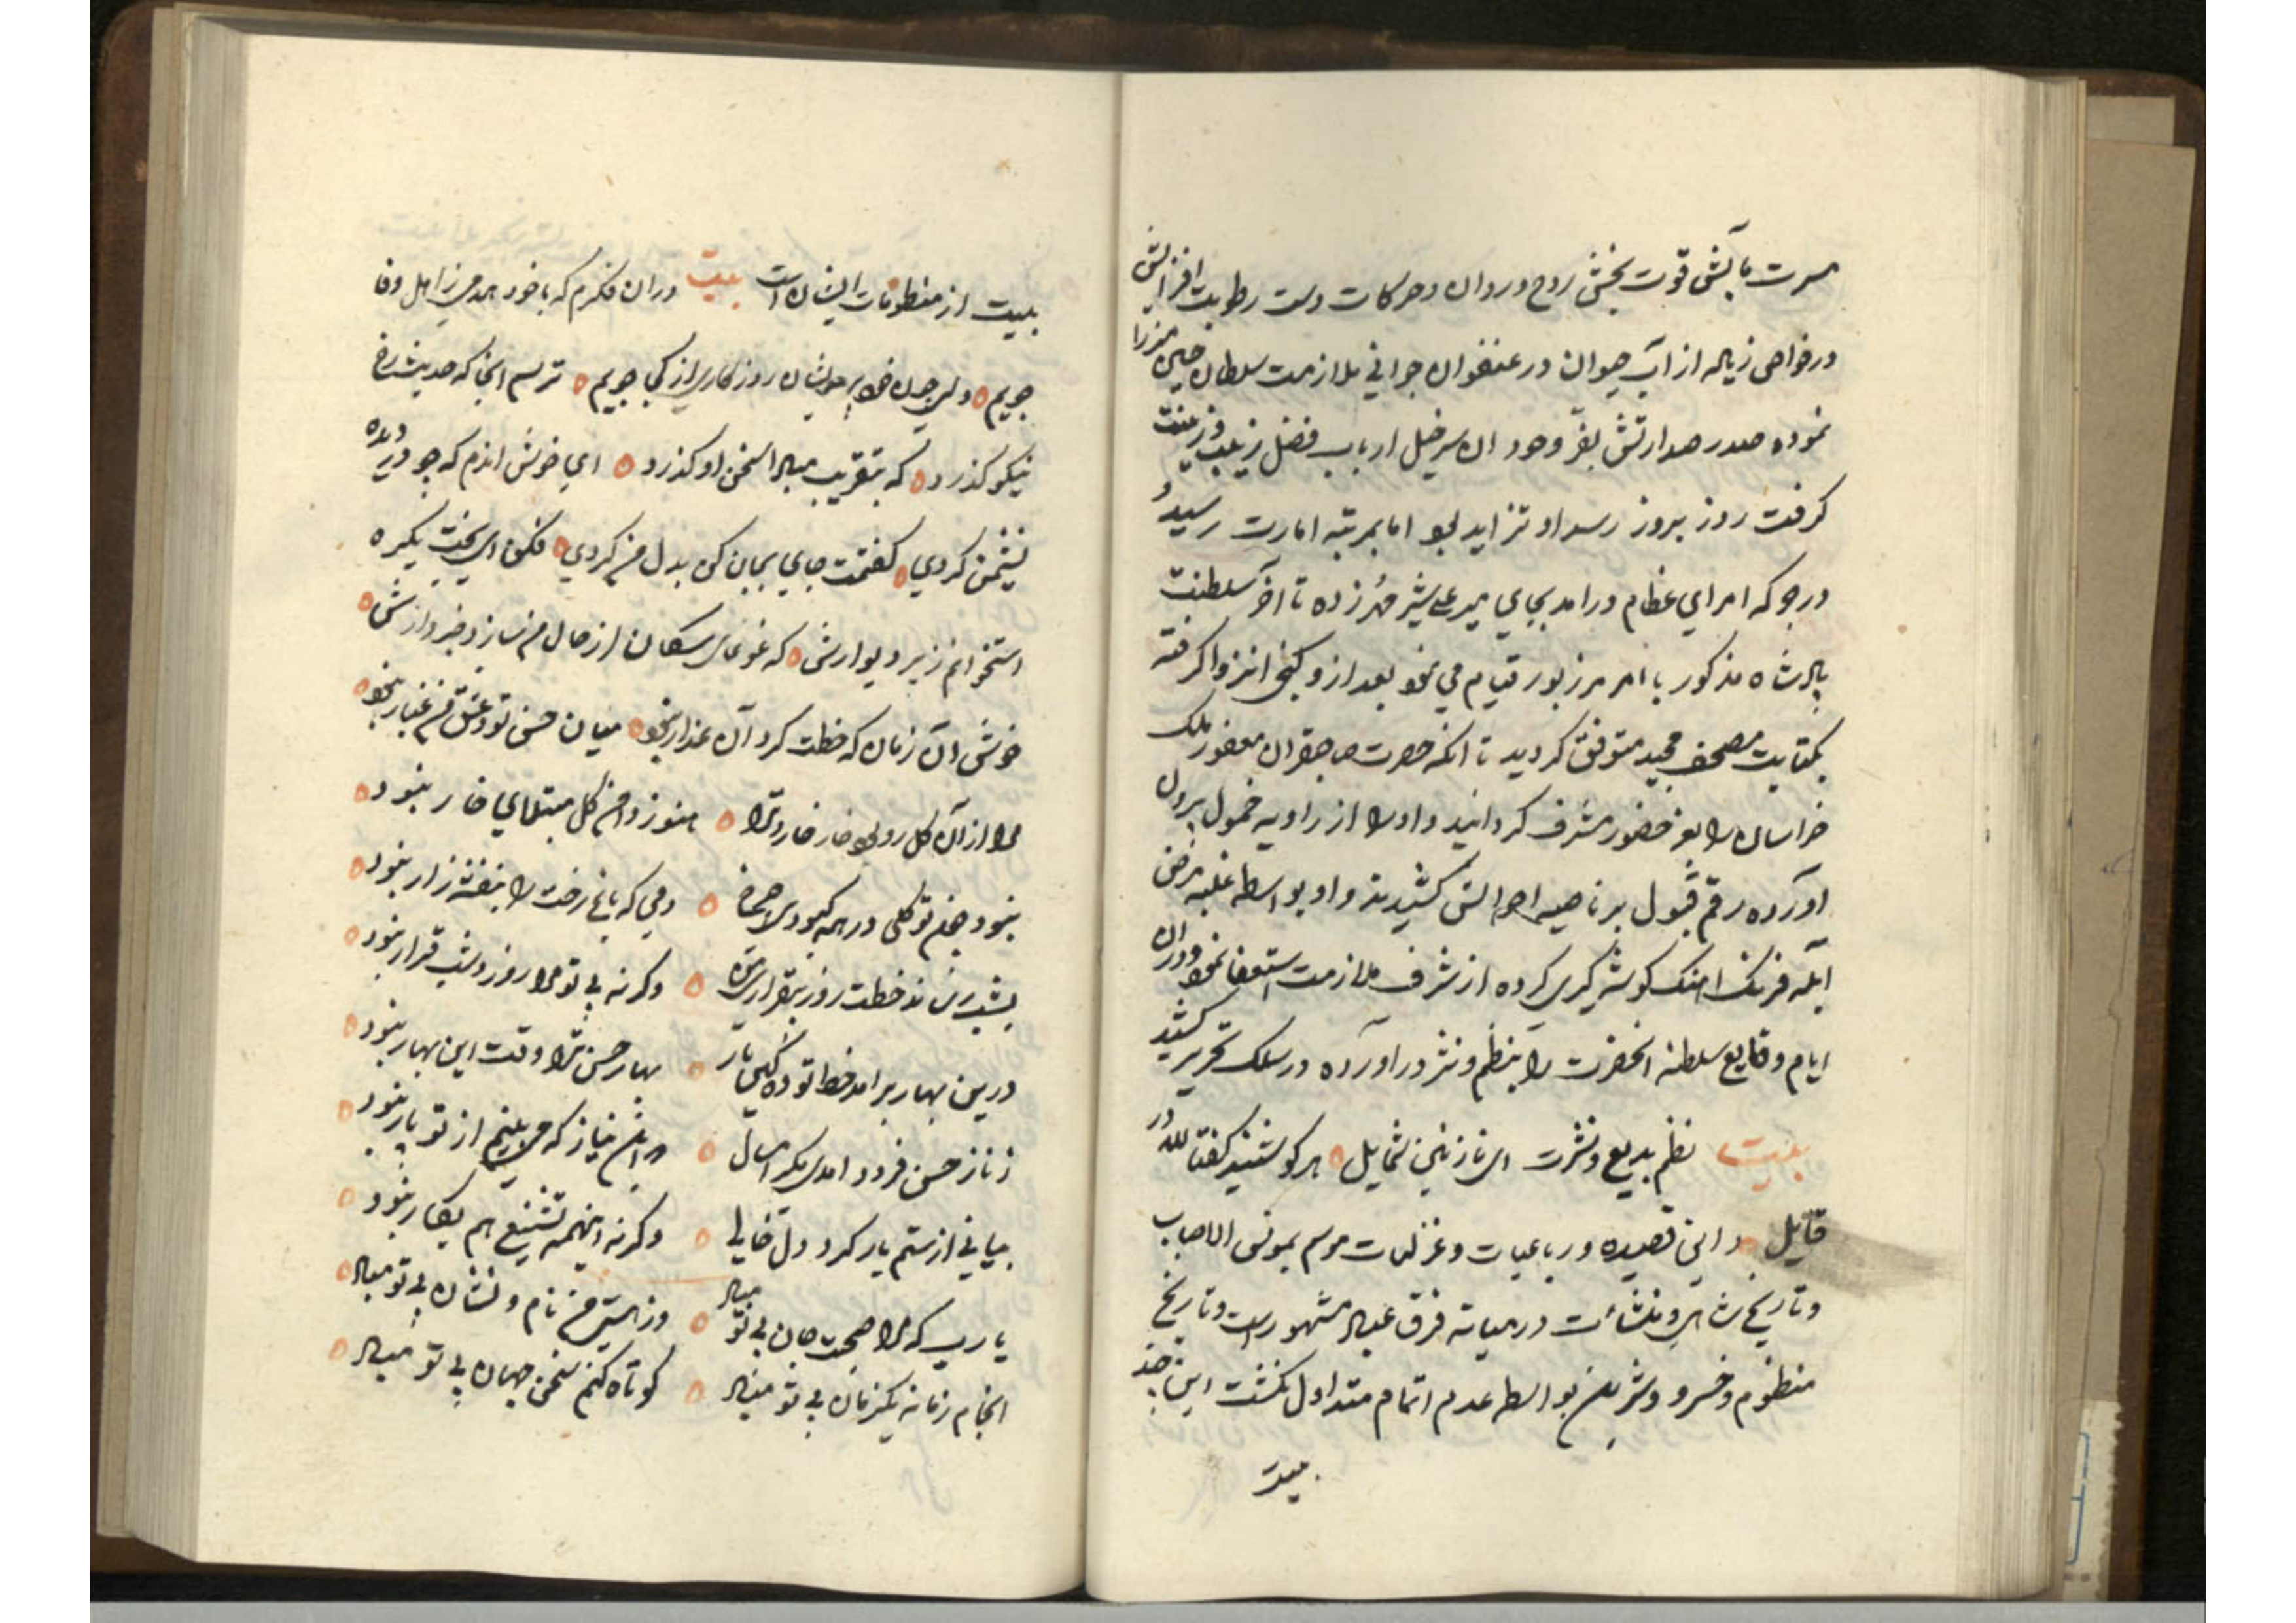 مسرت بآبش قوت بخش روح و روان و حرکات دست رطوبت افزایش
در خواص زیاده از آب حیوان در عنفوان جوانی بملازمت سلطان حسین میرزا
نموده صدر صدارتش بفر وجود ان سرخیل ارباب فضل زیب و زینت
کرفت روز بروز تزاید بود اما بمرتبه امارت رسید و
در جرکه امرای عظام در امد بجای میر علی شیر مهر زده تا آخر سلطنت
پادشاه مذکور با امر مزبور قیام می نمود بعد ازو کنج انزوا کرفته
بکتابت مصحف مجید متوفق کردید تا انکه حضرت صاحبقران مغفور ملک
خراسان را بعز حضور مشرف کردانید و او را از زاویه خمول برون
اورده رقم قبول بر ناصیه احوالش کشیدند و او بواسطه غلبه مرض
آبله فرنک اهنک کوشه کیری کرده از شرف ملازمت استعفا نمود و دران
ایام وقایع سلطنه انحضرت را بنظم و نثر در اورده در سلک تحریر کشید
بیت نظم بدیع و نثرت ای نازنین شمایل هر کو شنید کفتا لله در
قایل و این قصیده و رباعیات و غزلیات موسم بمونس الاحباب
و تاریخ شاهی و منشأت در میانه فرق عباد مشهور است و تاریخ
منظوم و خسرو و شیرین بواسطه عدم اتمام متداول نکشت این چند
بیت
بیت از منظومات ایشان است بیت دران فکرم که با خود همدمی ز اهل وفا
جویم ولی چون خود پریشان روزکاری از کجا جویم ترسم انجا که حدیث رخ
نیکو کذرد که بتقریب مبادا سخن او کذرد ای خوش اندم که چو در دیده
نشیمن کردی کفتمت جای بجان کن بدل من کردی فکن ای بخت یکره
استخوانم زیر دیوارش که غوغای سکان از حال من سازد خبردارش
خوش آن زمان که خطت کرد آن عذار نبود میان حسن تو و عشق من غبار نبود
مرا از آن کل رو بود خار خار ترا هنوز دامن کل مبتلای خار نبود
نبود چشم تو کلی در همه کبودی چرخ دمی که باغ رخت را بنفشه زار نبود
بشب رساند خطت روز بیقراری من وکرنه بی تو مرا روز و شب قرار نبود
درین بهار بر امد خط تو ده که پار بهار حسن ترا وقت این بهار نبود
ز ناز حسن فرود امدی مکر امسال در این نیاز که می بینم از تو پار نبود
بیانی از ستم یار کرد دل خالی وکرنه اینهمه تشنیع هم بکار نبود
یا رب که مرا صحبت جان بی تو مباد وز هستی من نام و نشان بی تو مباد
انجام زمانه یکزمان بی تو مباد کوتاه کنم سخن جهان بی تو مباد